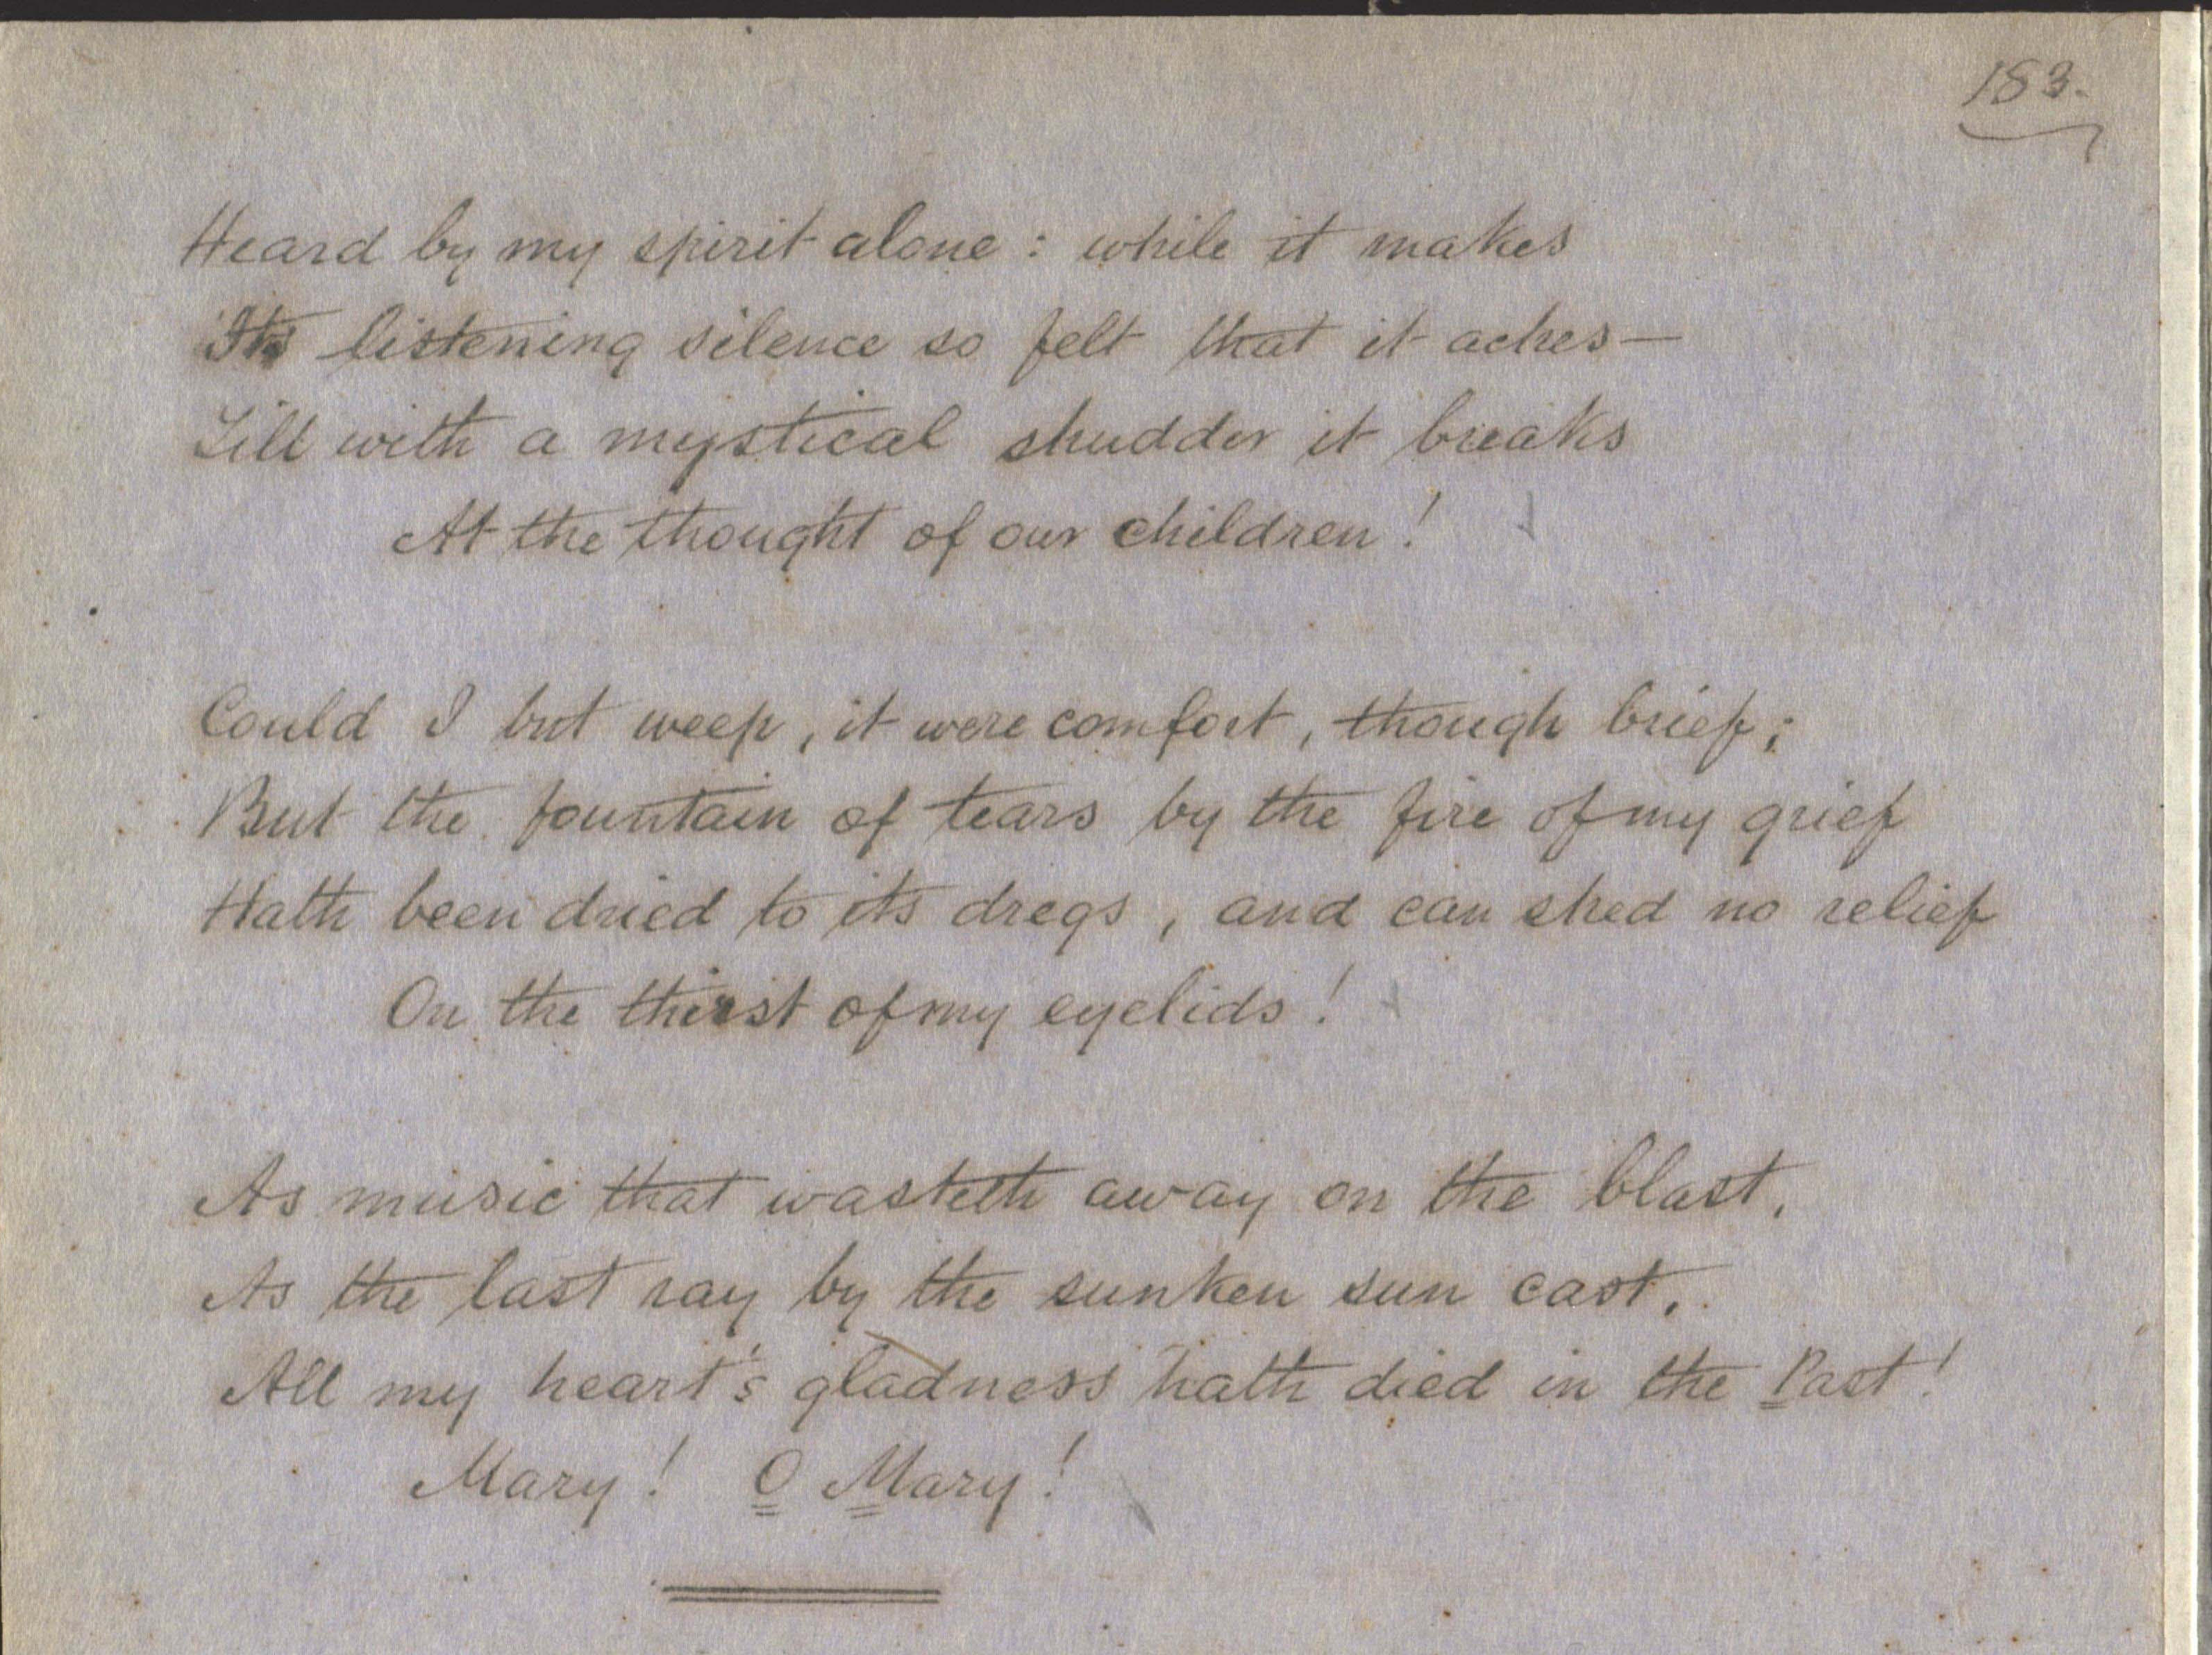 183.
Heard by my spirit alone : while it makes
Its listening silence so felt that it aches—
Till with a mystical shudder it breaks
At the thought of our children !
Could I but weep, it were comfort, though brief;
But the fountain of tears by the fire of my grief
Hath been dried to its dregs, and can shed no relief
On the thirst of my eyelids !
As music that wasteth away on the blast,
As the last ray by the sunken sun cast,
All my heart's gladness hath died in the Past !
Mary ! O Mary !